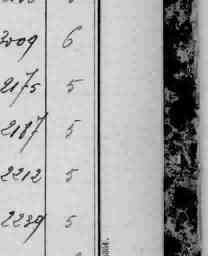 3009 6
2175 5
2187 5
2212 5
2239 5